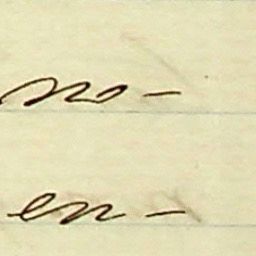 no-
en-